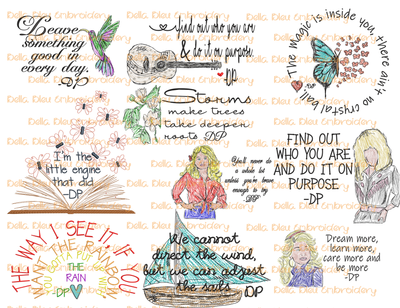 Leave
something
good in
every day.
-DP
find out who you are
& do it on purpose.
-DP
The magic is inside you, there ain't no crystal ball.
-DP
Storms
make trees
take deeper
roots -DP
I'm the
little engine
that did
-DP
You'll never do
a whole lot
unless you're brave
enough to try
-DP
FIND OUT
WHO YOU ARE
AND DO IT ON
PURPOSE
-DP
THE WAY I SEE IT, IF YOU
WANT THE RAINBOW
THE
RAIN
-DP
We cannot
direct the wind,
but we can adjust
the sails -DP
Dream more,
learn more,
care more and
be more
-DP
Bella Bleu Embroidery